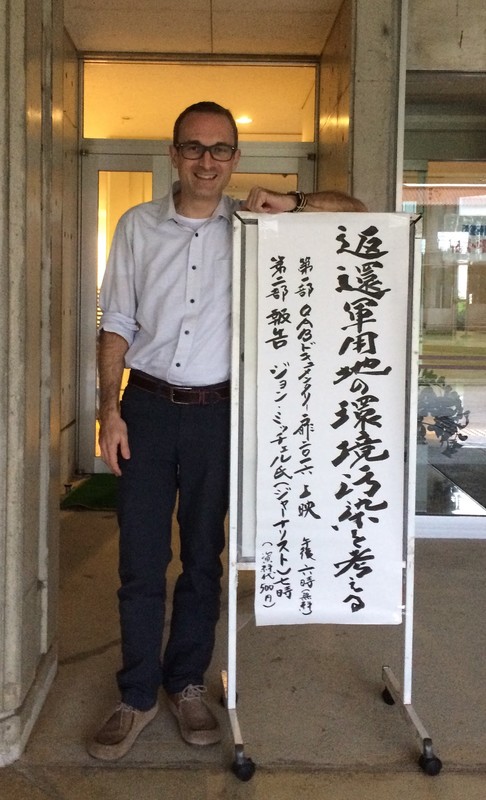 返還軍用地の環境汚染を考える
第一部 QABドキュメンタリー 二〇一六 上映 午後六時(無料)
第二部 報告 ジョン・ミッチェル氏(ジャーナリスト)七時(資料代500円)